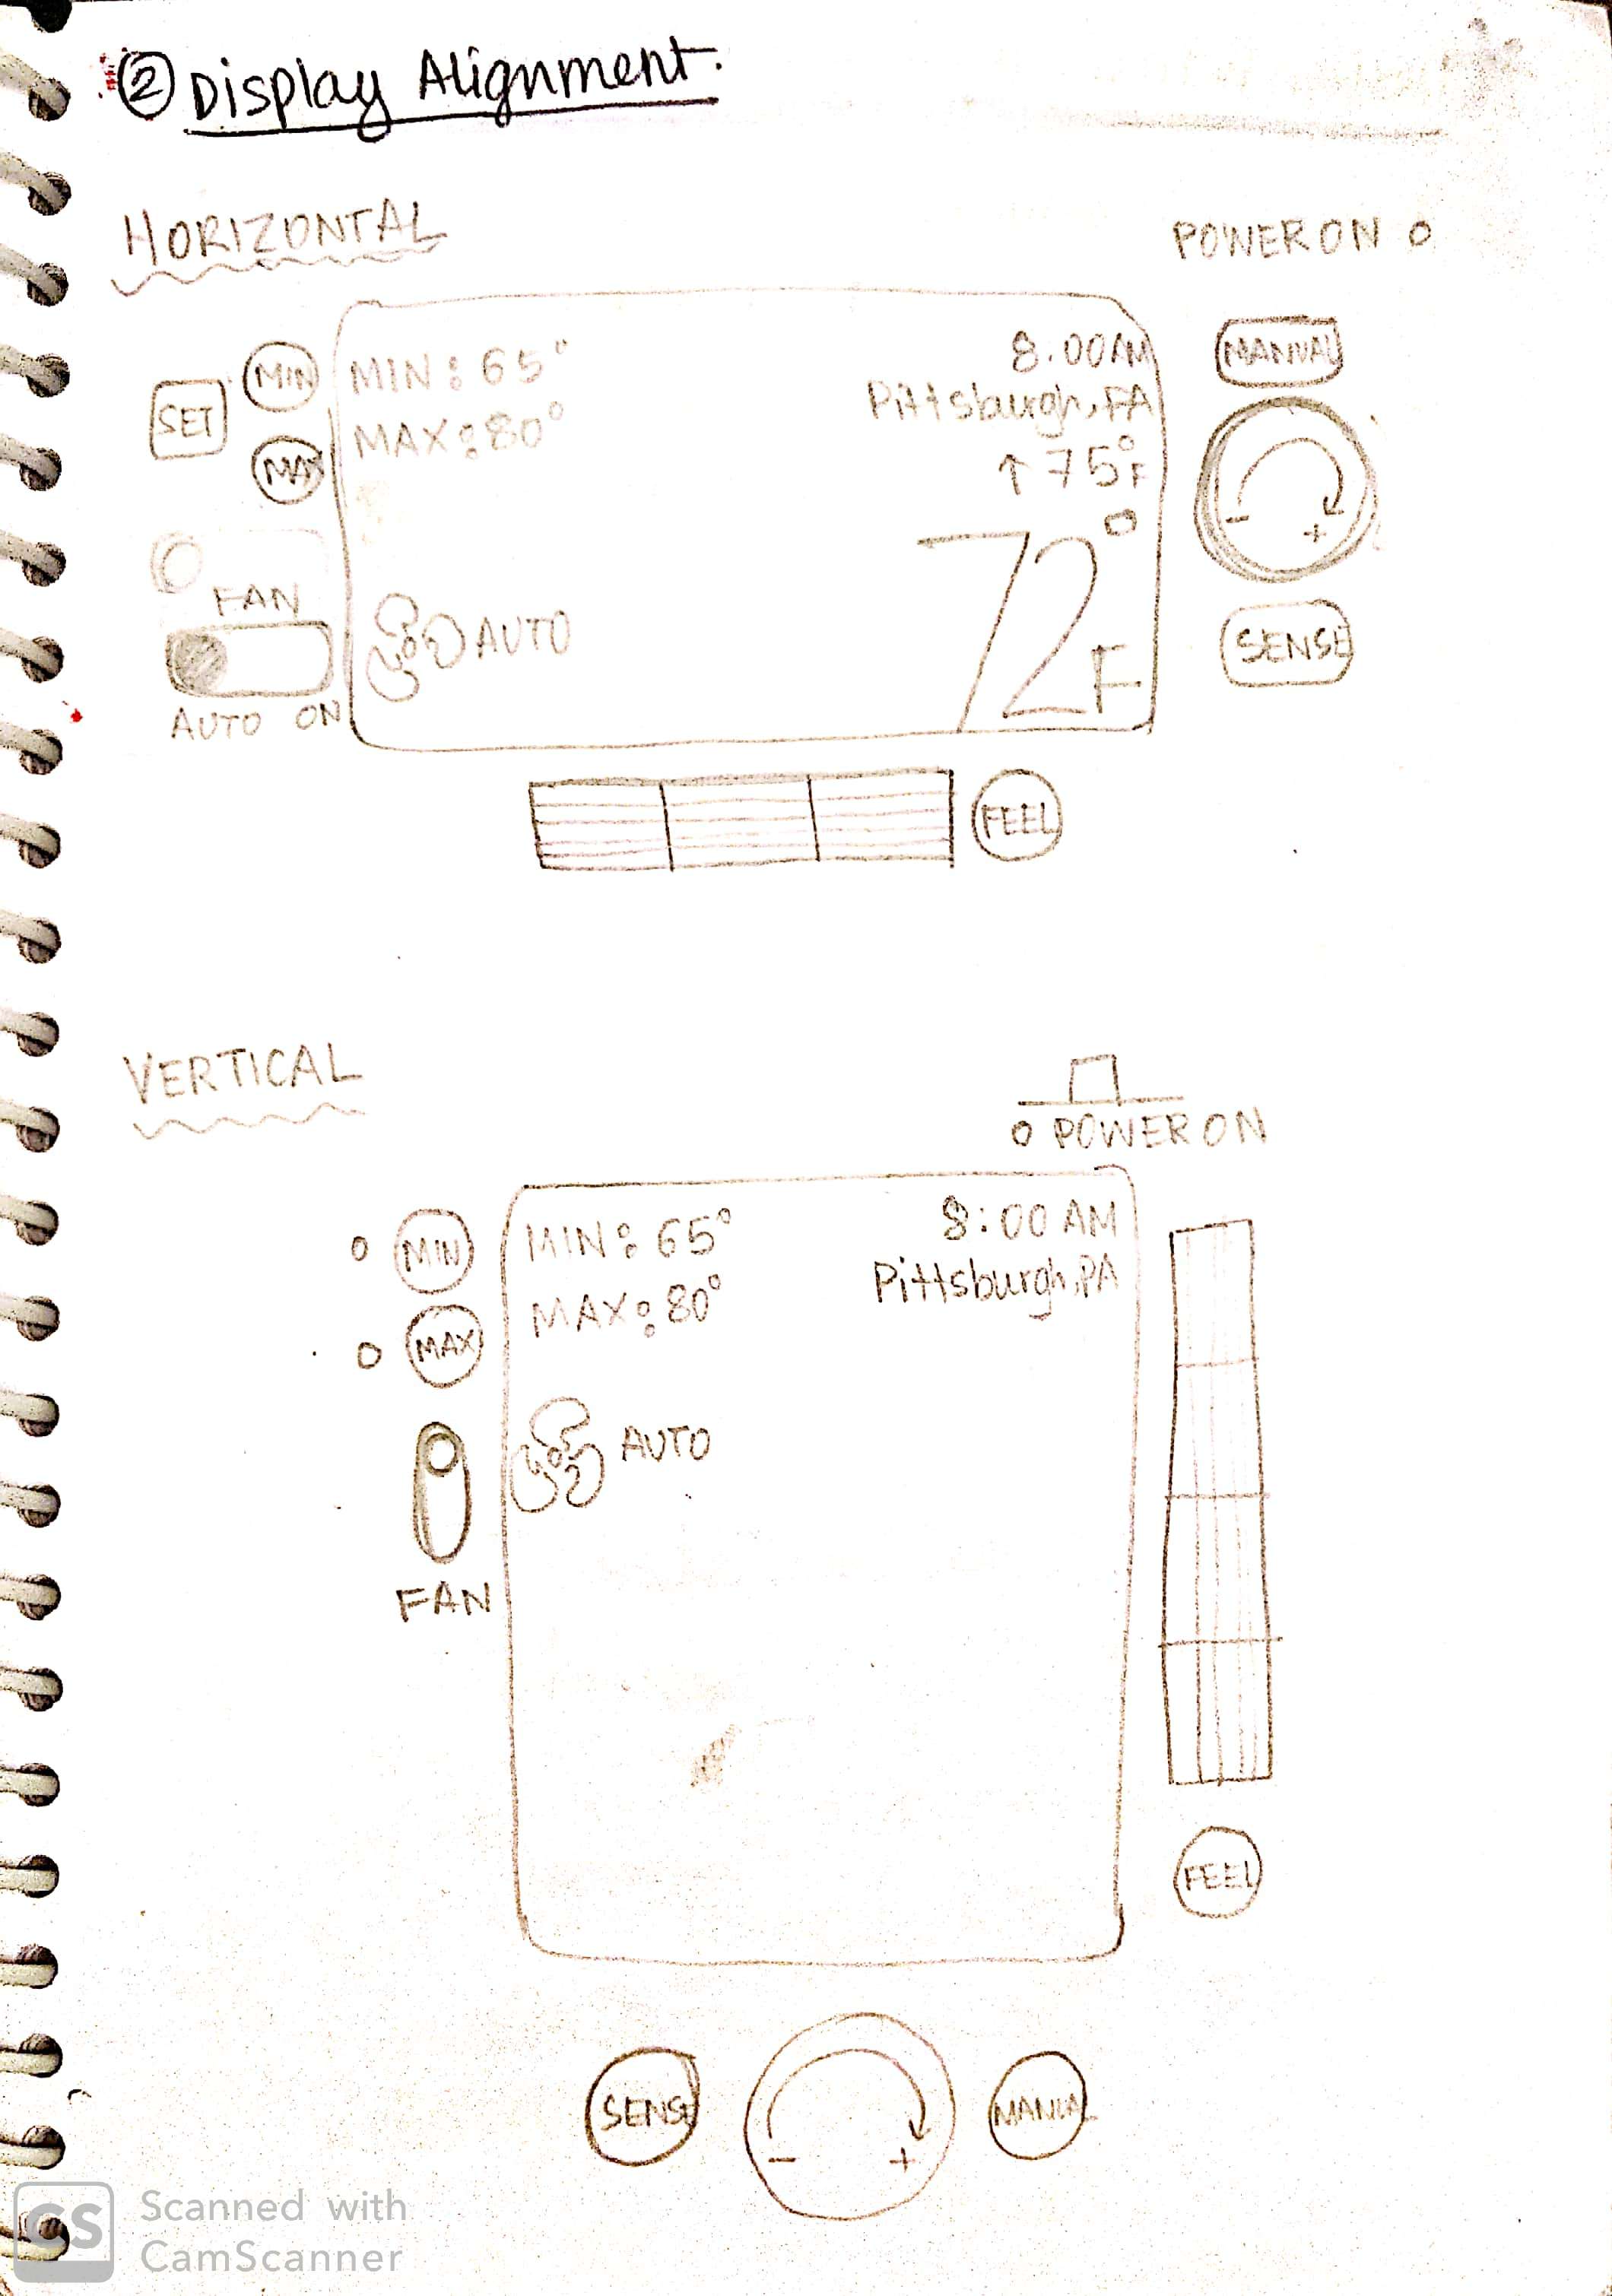 ② Display Alignment.
HORIZONTAL
POWER ON
SET
MIN
MAX
MIN: 65°
MAX: 80°
8.00AM
Pittsburgh, PA
↑ 75°F
72°F
MANUAL
- +
SENSE
FAN
AUTO ON
AUTO
FEEL
VERTICAL
POWER ON
MIN
MAX
MIN: 65°
MAX: 80°
8:00 AM
Pittsburgh, PA
AUTO
FAN
FEEL
SENSE
- +
MANUAL
CS
Scanned with
CamScanner